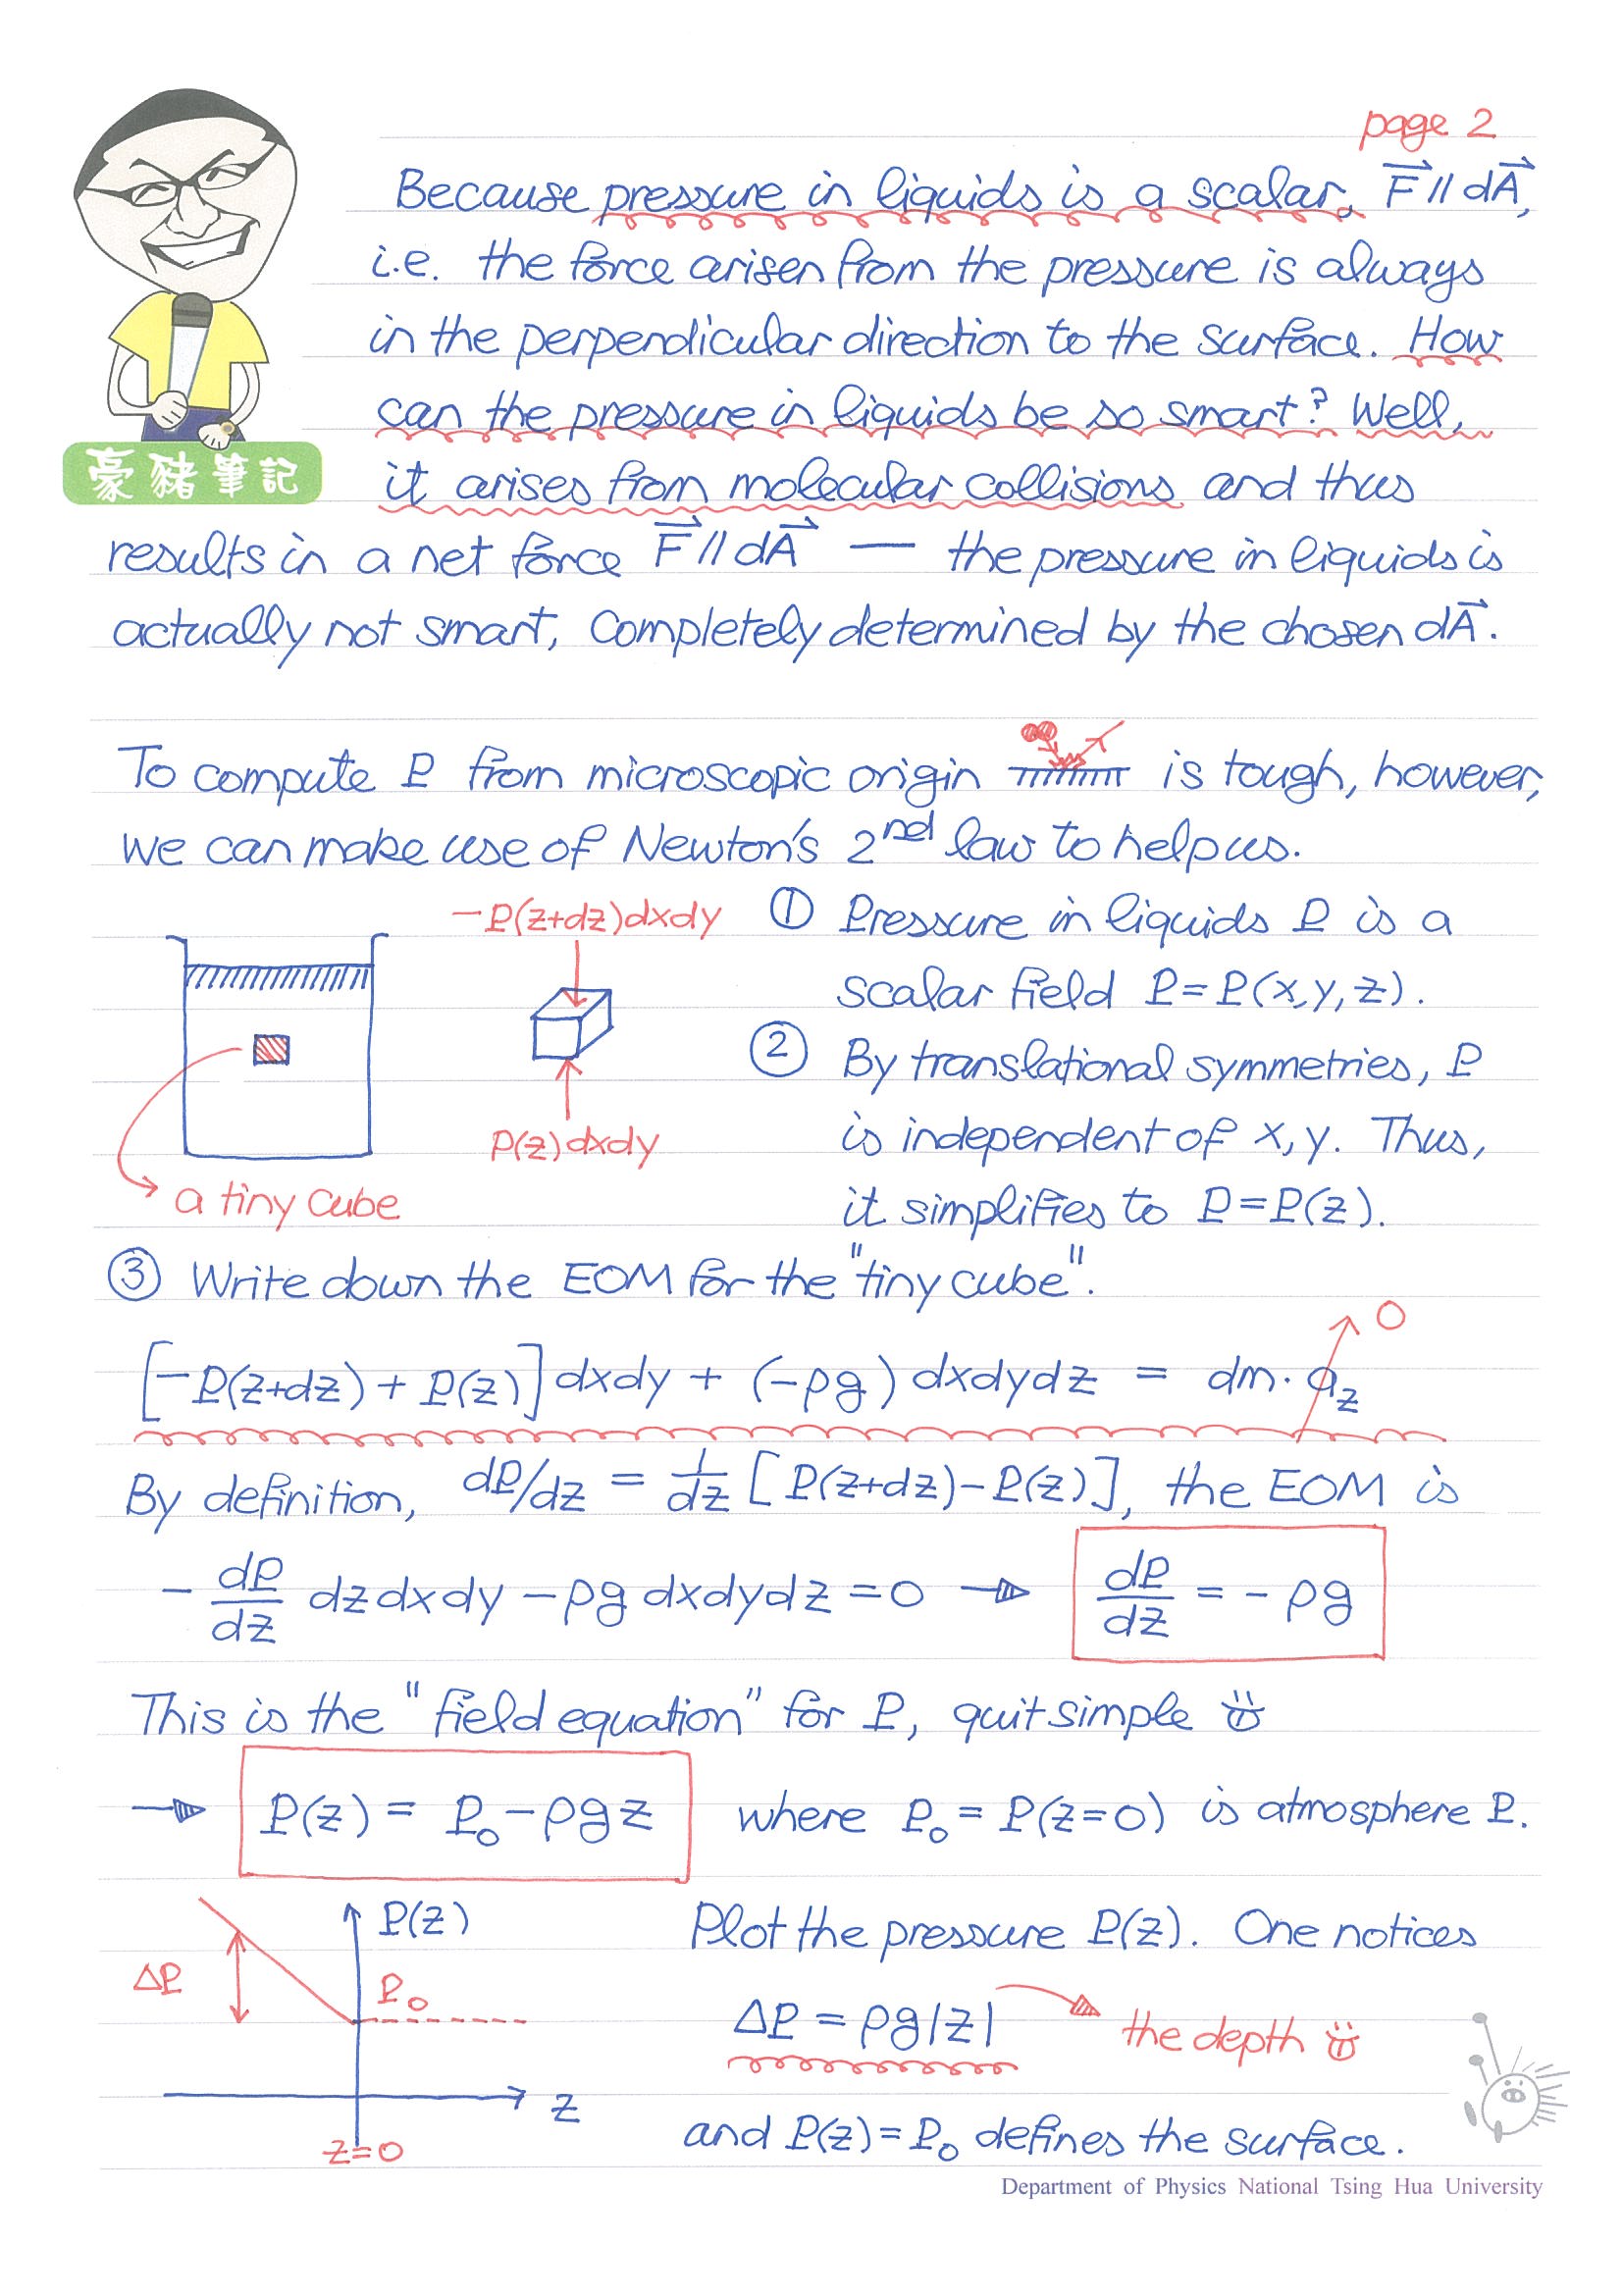 page 2
Because pressure in liquids is a scalar, F⃗ // dA⃗,
i.e. the force arisen from the pressure is always
in the perpendicular direction to the surface. How
can the pressure in liquids be so smart? Well,
豪豬筆記
it arises from molecular collisions and thus
results in a net force F⃗ // dA⃗ — the pressure in liquids is
actually not smart, completely determined by the chosen dA⃗.
To compute P from microscopic origin is tough, however,
we can make use of Newton's 2nd law to help us.
-P(z+dz)dxdy
P(z)dxdy
a tiny cube
① Pressure in liquids P is a
scalar field P=P(x,y,z).
② By translational symmetries, P
is independent of x,y. Thus,
it simplifies to P=P(z).
③ Write down the EOM for the "tiny cube".
[-P(z+dz) + P(z)] dxdy + (-ρg) dxdydz = dm · a_z
0
By definition, dP/dz = 1/dz [P(z+dz)-P(z)], the EOM is
- dP/dz dzdxdy - ρg dxdydz = 0 → dP/dz = - ρg
This is the "field equation" for P, quit simple
→ P(z) = P₀ - ρgz where P₀ = P(z=0) is atmosphere P.
P(z)
ΔP
P₀
z
z=0
Plot the pressure P(z). One notices
ΔP = ρg|z|
the depth
and P(z)=P₀ defines the surface.
Department of Physics National Tsing Hua University